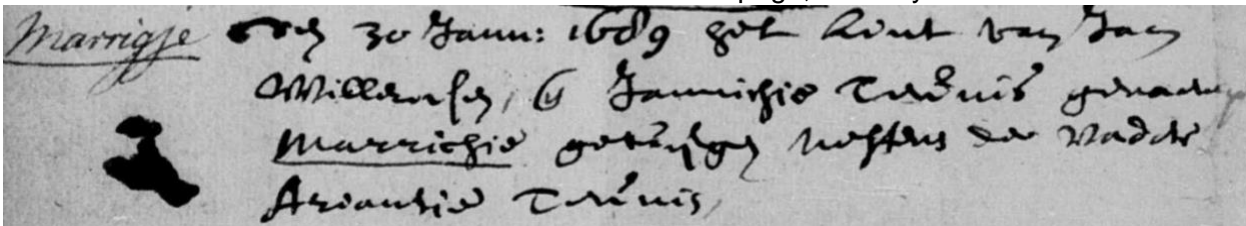 Marrigje den 30 Jann: 1689 het kint van Jan
Willemsen, bij Jannichie Teunis genaamt
Marrichie getuijgen neffens de Vader
Ariantie Teunis,